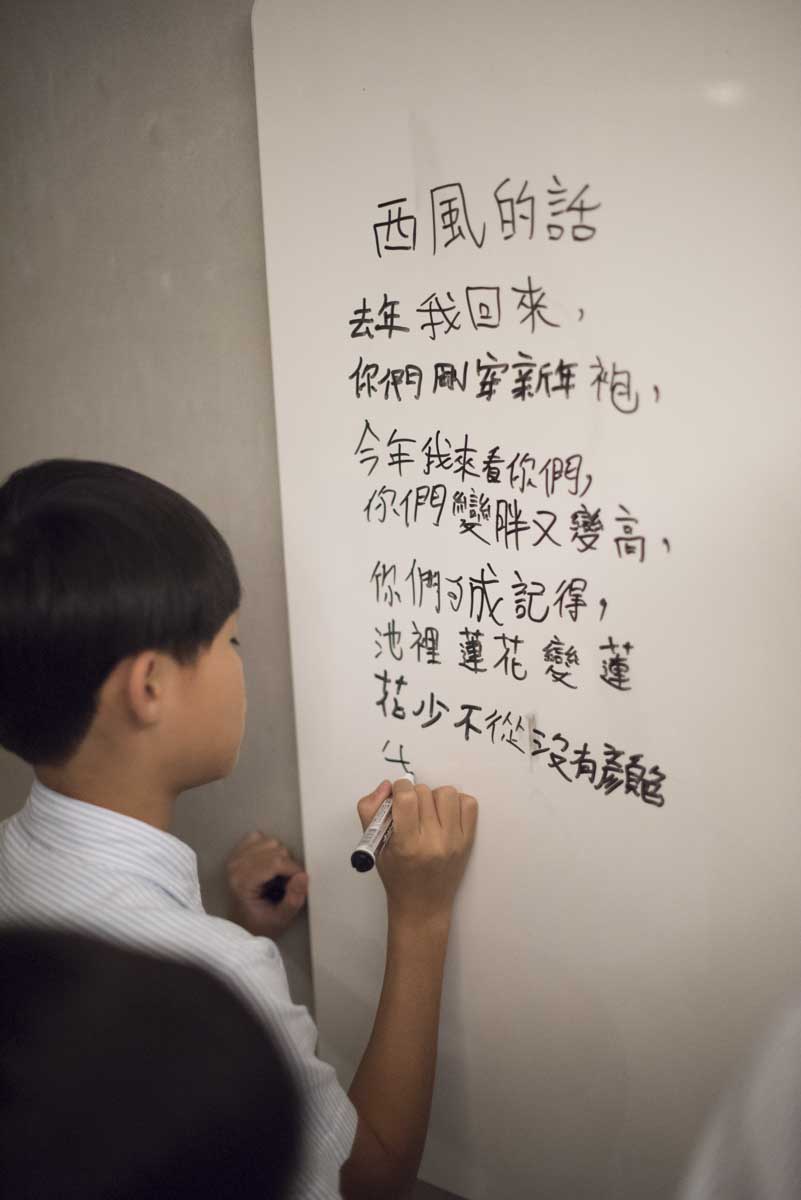 西風的話
去年我回來，
你們剛穿新年袍，
今年我來看你們，
你們變胖又變高，
你們可成記得，
池裡蓮花變蓮
花少不從沒有顏色